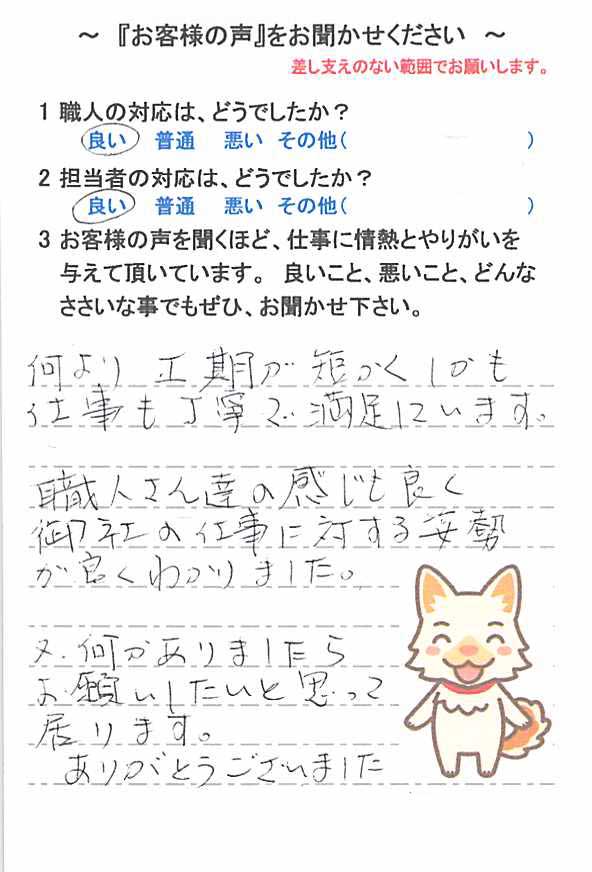 ～ 『お客様の声』をお聞かせください ～
差し支えのない範囲でお願いします。
1 職人の対応は、どうでしたか？
良い 普通 悪い その他( )
2 担当者の対応は、どうでしたか？
良い 普通 悪い その他( )
3 お客様の声を聞くほど、仕事に情熱とやりがいを
与えて頂いています。 良いこと、悪いこと、どんな
ささいな事でもぜひ、お聞かせ下さい。
何より 工期が短かくしかも
仕事も丁寧で満足しています。
職人さん達の感じも良く
御社の仕事に対する姿勢
が良くわかりました。
又、何かありましたら
お願いしたいと思って
居ります。
ありがとうございました